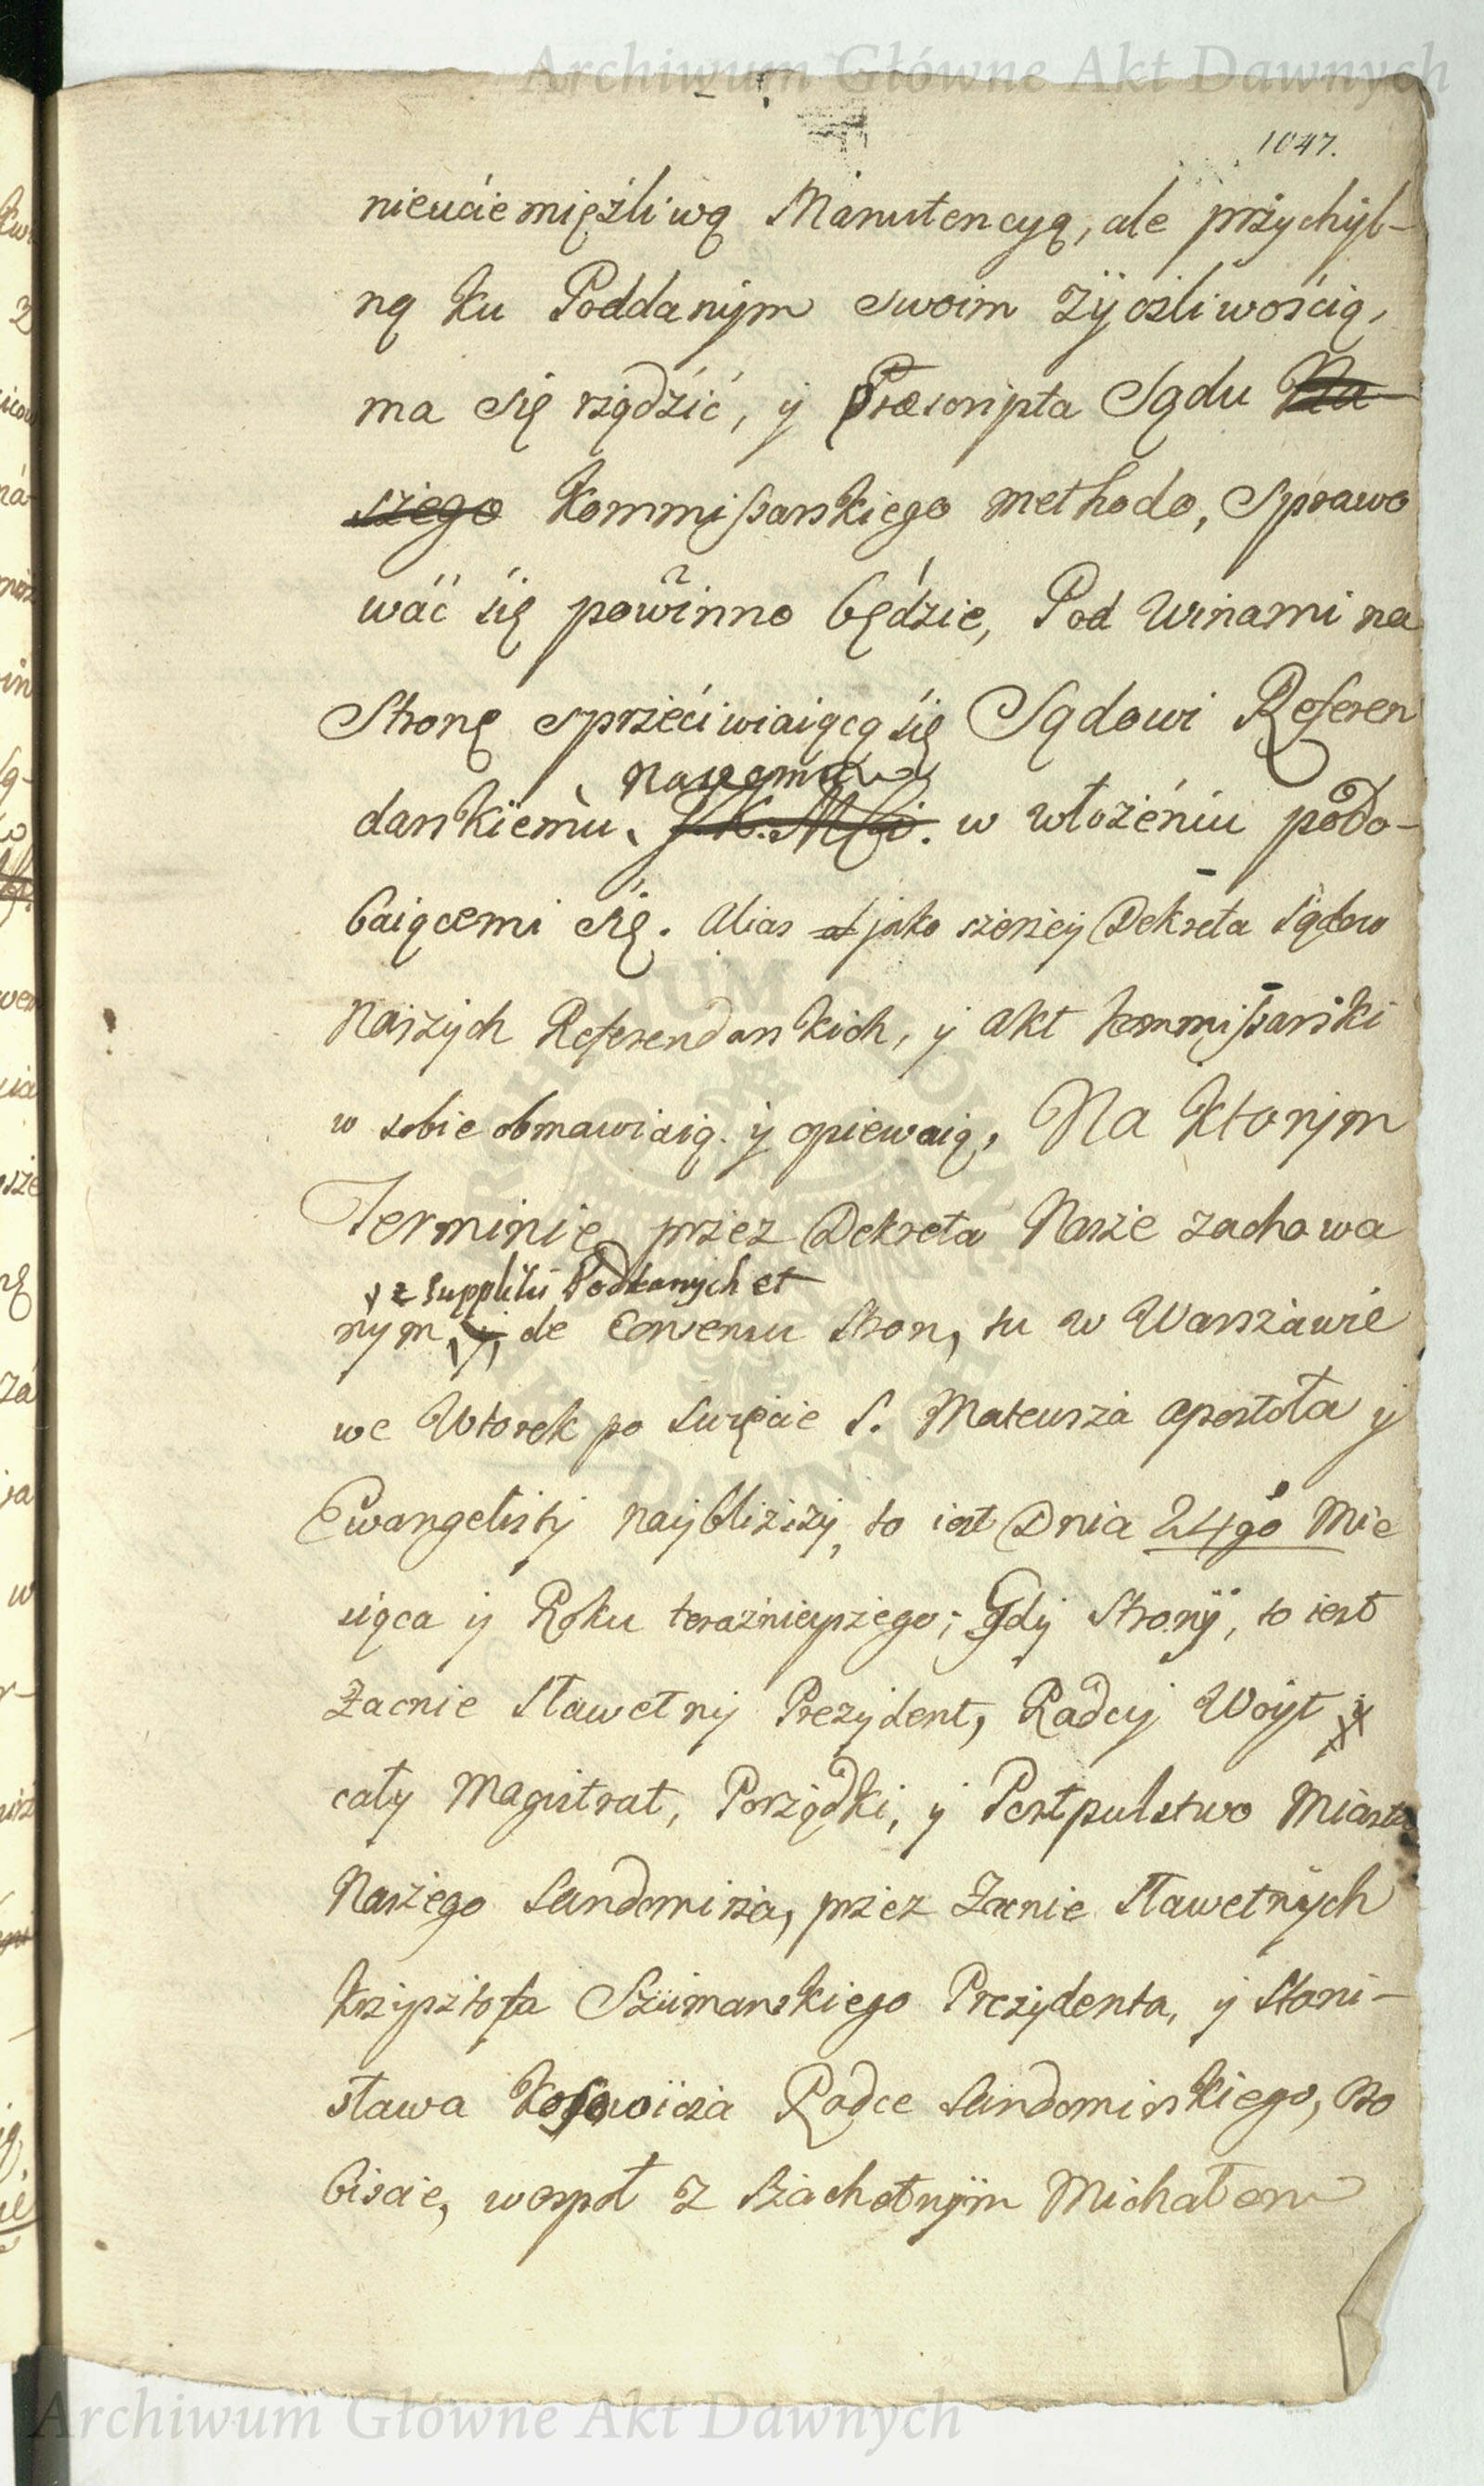 Archiwum Główne Akt Dawnych
1047.
nieuciemięźliwą Manutencyą, ale przychyl-
ną ku Poddanym swoim życzliwością,
ma się rządzić, y Præscripta Sądu Na-
szego Kommissarskiego methodo, Sprawo
wać się powinno będzie, Pod Winami na
Stronę sprzeciwiaiącą się Sądowi Referen
Naszemu
darskiemu, J. K. Mci. w włożeniu podo-
baiącemi się. Alias jako szerzey Dekreta Sądow
Naszych Referendarskich, y akt kommissarski
w sobie obmawiaią y opiewaią, Na ktorym
Terminie przez Dekreta Nasze zachowa
y z suppliki Poddanych et
nym, y, de Consensu Stron, tu w Warszawie
we Wtorek po Swięcie S. Mateusza Apostoła y
Ewangelisty nayblizszy, to iest Dnia 24go Mie
siąca y Roku teraznieyszego; Gdy Strony, to iest
Zacnie Sławetny Prezydent, Radcy Woyt y
cały Magistrat, Porządki, y Postpulstwo Miasta
Naszego Sandomirza, przez Zacnie Sławetnych
Krzysztofa Szumanskiego Prezydenta, y Stani-
sława Radce Sandomirskiego, Oso
biscie, wespoł z Szlachetnym Michałem
ARCHIWUM GŁÓWNE AKT DAWNYCH
Archiwum Główne Akt Dawnych